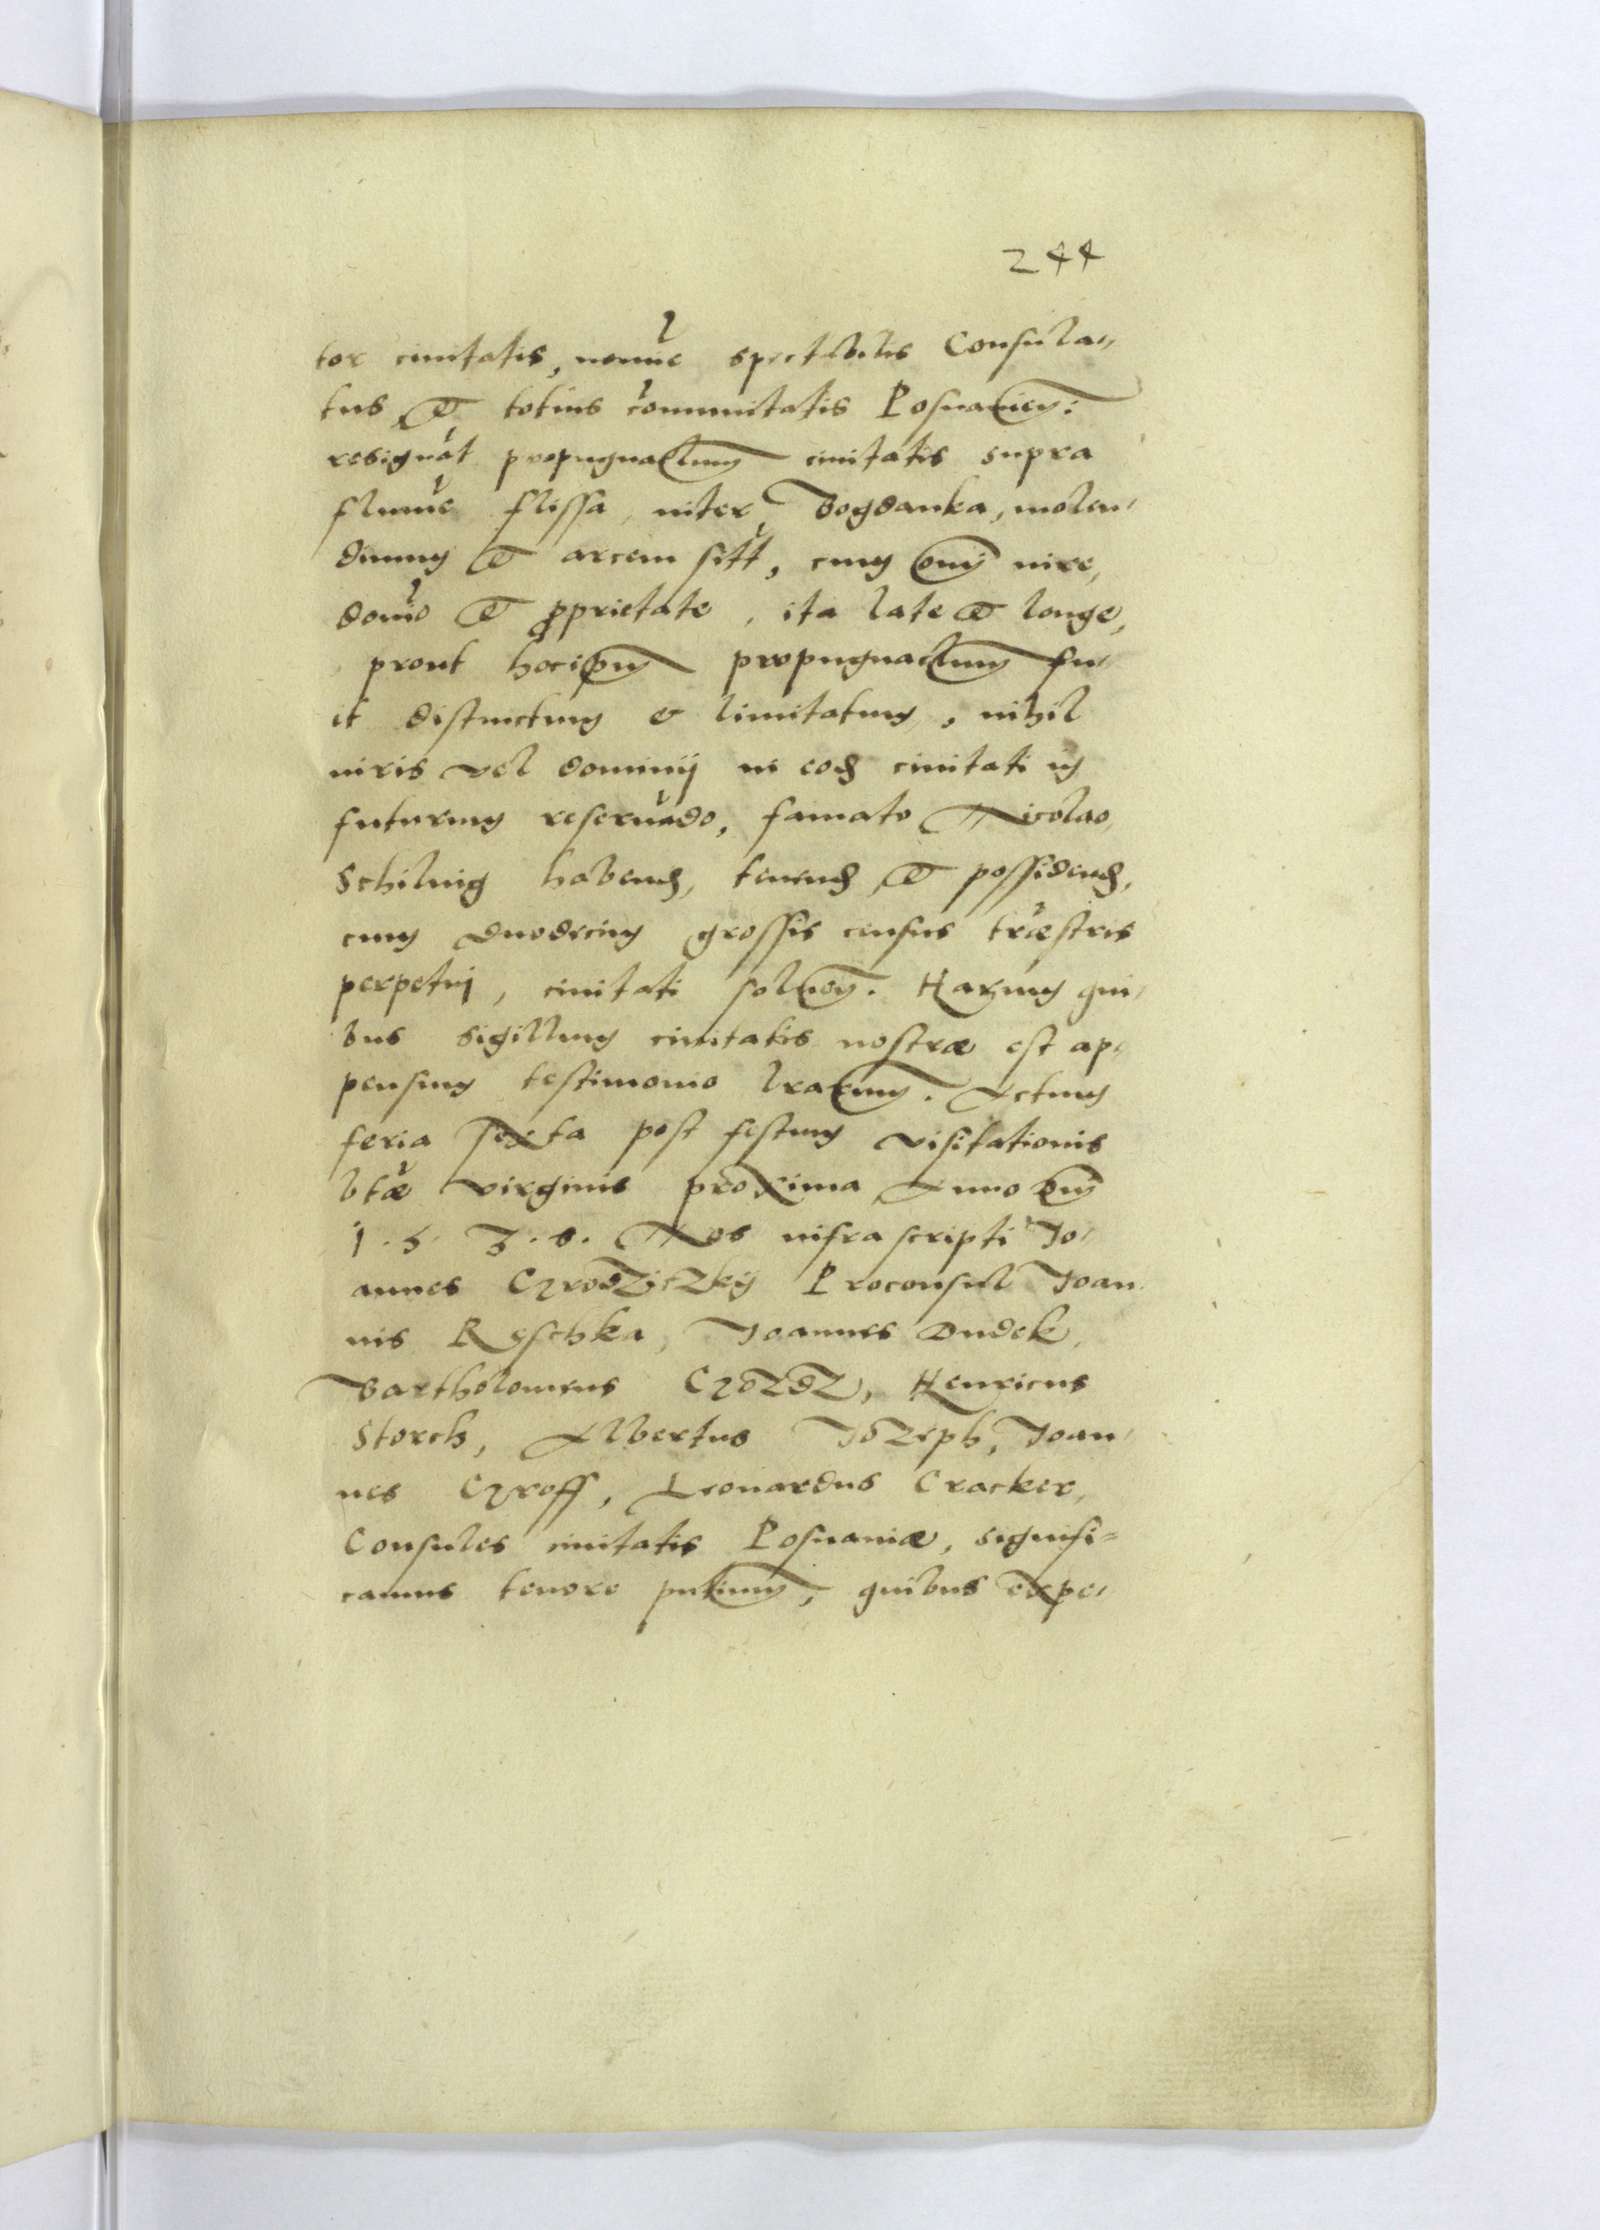 244
tor ciuitatis, nomīe spectabilis Consula-
tus et totius cōmunitatis Posnanien:
resignat propugnaclum ciuitatis supra
flumīe flissa, inter Bogdanka, molen-
dinum et arcem sitt, cum omī iure,
domīo et proprietate, ita late et longe,
prout hocipm propugnaclum fu-
it distinctum & limitatum, nihil
iuris vel dominij in eod ciuitati in
futurum reseruādo, famato Nicolao
Schiling habend, tenend et possidend,
cum duodecim grossis census trāestris
perpetui, ciuitati soluen. Harum qui-
bus sigillum ciuitatis nostræ est ap-
pensum testimonio lrarum. Actum
feria sexta post festum visitationis
btæ virginis proxima Anno dni
1.5.3.8. Nos infra scripti Jo-
annes Grodziczkij Proconsul Joan
nis Reschka, Joannes Dudek,
Bartholomeus Gozdz, Henricus
Storch, Albertus Jozeph, Joan-
nes Groff, Leonardus Cracker,
Consules ciuitatis Posnaniæ, signifi-
camus tenore pntium, quibus expe-